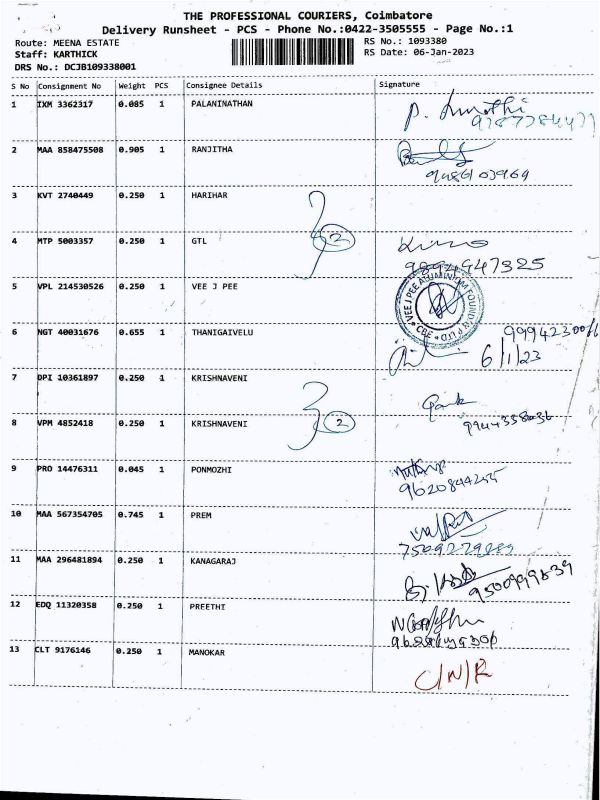 THE PROFESSIONAL COURIERS, Coimbatore
Delivery Runsheet - PCS - Phone No.:0422-3505555 - Page No.:1
Route: MEENA ESTATE RS No.: 1093380
Staff: KARTHICK RS Date: 06-Jan-2023
DRS No.: DCJB109338001
S No Consignment No Weight PCS Consignee Details Signature
1 IXM 3362317 0.085 1 PALANINATHAN
2 MAA 858475508 0.905 1 RANJITHA
9486103969
3 KVT 2740449 0.250 1 HARIHAR
2
4 MTP 5003357 0.250 1 GTL
9894947325
5 VPL 214530526 0.250 1 VEE J PEE
VEE J PEE ALUMINIUM FOUNDRY P LTD * CBE *
6 NGT 40031676 0.655 1 THANIGAIVELU
6/1/23
7 DPI 10361897 0.250 1 KRISHNAVENI
8 VPM 4852418 0.250 1 KRISHNAVENI
2
9944358036
9 PRO 14476311 0.045 1 PONMOZHI
9620844255
10 MAA 567354705 0.745 1 PREM
11 MAA 296481894 0.250 1 KANAGARAJ
12 EDQ 11320358 0.250 1 PREETHI
13 CLT 9176146 0.250 1 MANOKAR
C/N/R